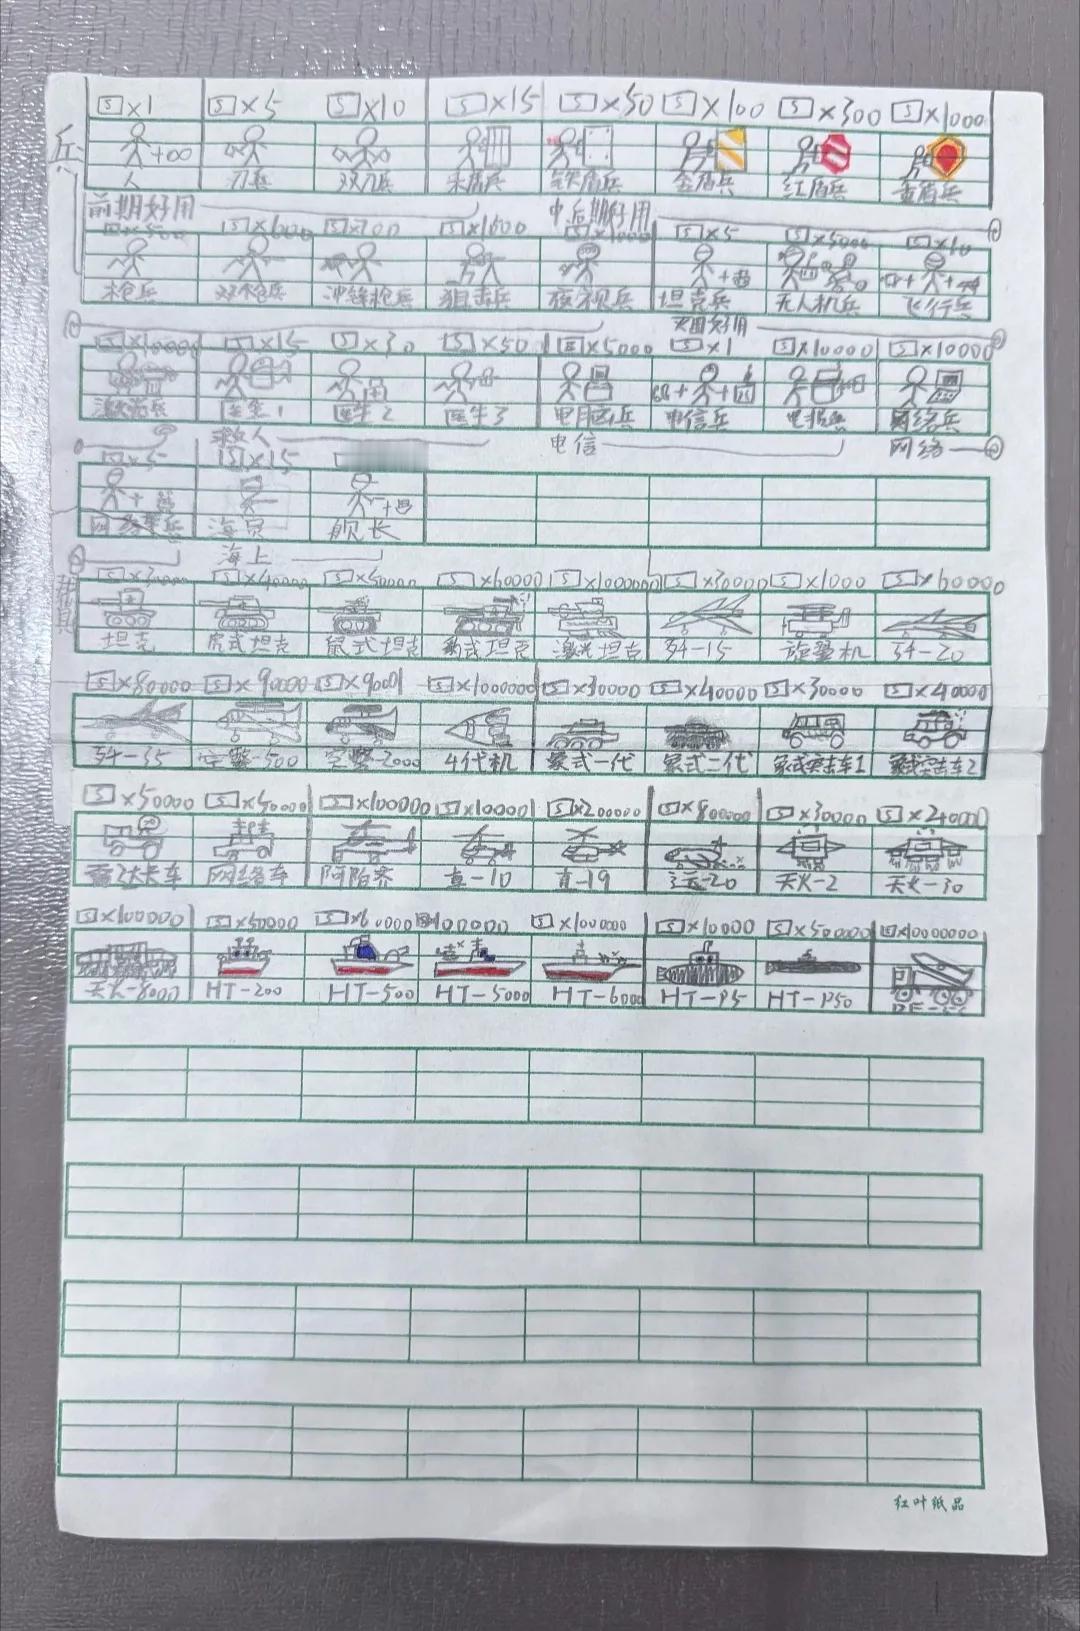 兵
S×1 S×5 S×10 S×15 S×50 S×100 S×300 S×1000
+∞
人 刀兵 双刀兵 木盾兵 铁盾兵 金盾兵 红盾兵
前期好用 中后期好用
S×600 S×700 S×5 S×5000 S×10
枪兵 双枪兵 冲锋枪兵 狙击兵 夜视兵 坦克兵 无人机兵 飞行兵
S×10000 S×15 S×30 S×50 S×5000 S×1 S×10000 S×10000
激光兵 医生1 医生2 医生3 电脑兵 电信兵 电报兵 网络兵
救人 电信 网络
S×5 S×15
海员 舰长
海上
S×30000 S×40000 S×50000 S×60000 S×1000000 S×30000 S×1000 S×60000
坦克 虎式坦克 鼠式坦克 豹式坦克 激光坦克 歼-15 旋翼机 歼-20
S×80000 S×90000 S×90001 S×1000000 S×30000 S×40000 S×30000 S×40000
歼-35 空警-500 空警-2000 4代机 象式一代 象式二代 象式突击车1 象式突击车2
S×50000 S×50000 S×100000 S×10000 S×200000 S×80000 S×30000 S×20000
网络车 阿帕奇 直-10 直-19 运-20 天火-2 天火-30
S×100000 S×50000 S×60000 S×100000 S×1000000 S×10000 S×500000 S×10000000
天火-8000 HT-200 HT-500 HT-5000 HT-6000 HT-P5 HT-P50
红叶纸品